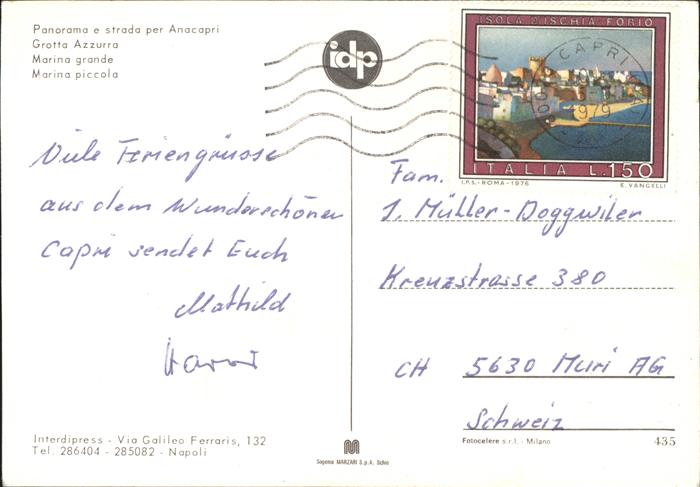 Panorama e strada per Anacapri
Grotta Azzurra
Marina grande
Marina piccola
idp
ISOLA D'ISCHIA-FORIO
CAPRI
1979
ITALIA L.150
I.P.S.-ROMA-1976 E. VANGELLI
Viele Feriengrüsse
aus dem Wunderschönen
Capri sendet Euch
Mathild
Fam.
J. Müller-Doggwiler
Kreuzstrasse 380
CH 5630 Muri AG
Schweiz
Interdipress - Via Galileo Ferraris, 132
Tel. 286404 - 285082 - Napoli
Sagoma MARZARI S.p.A. Schio
Fotocelere s.r.l. - Milano 435